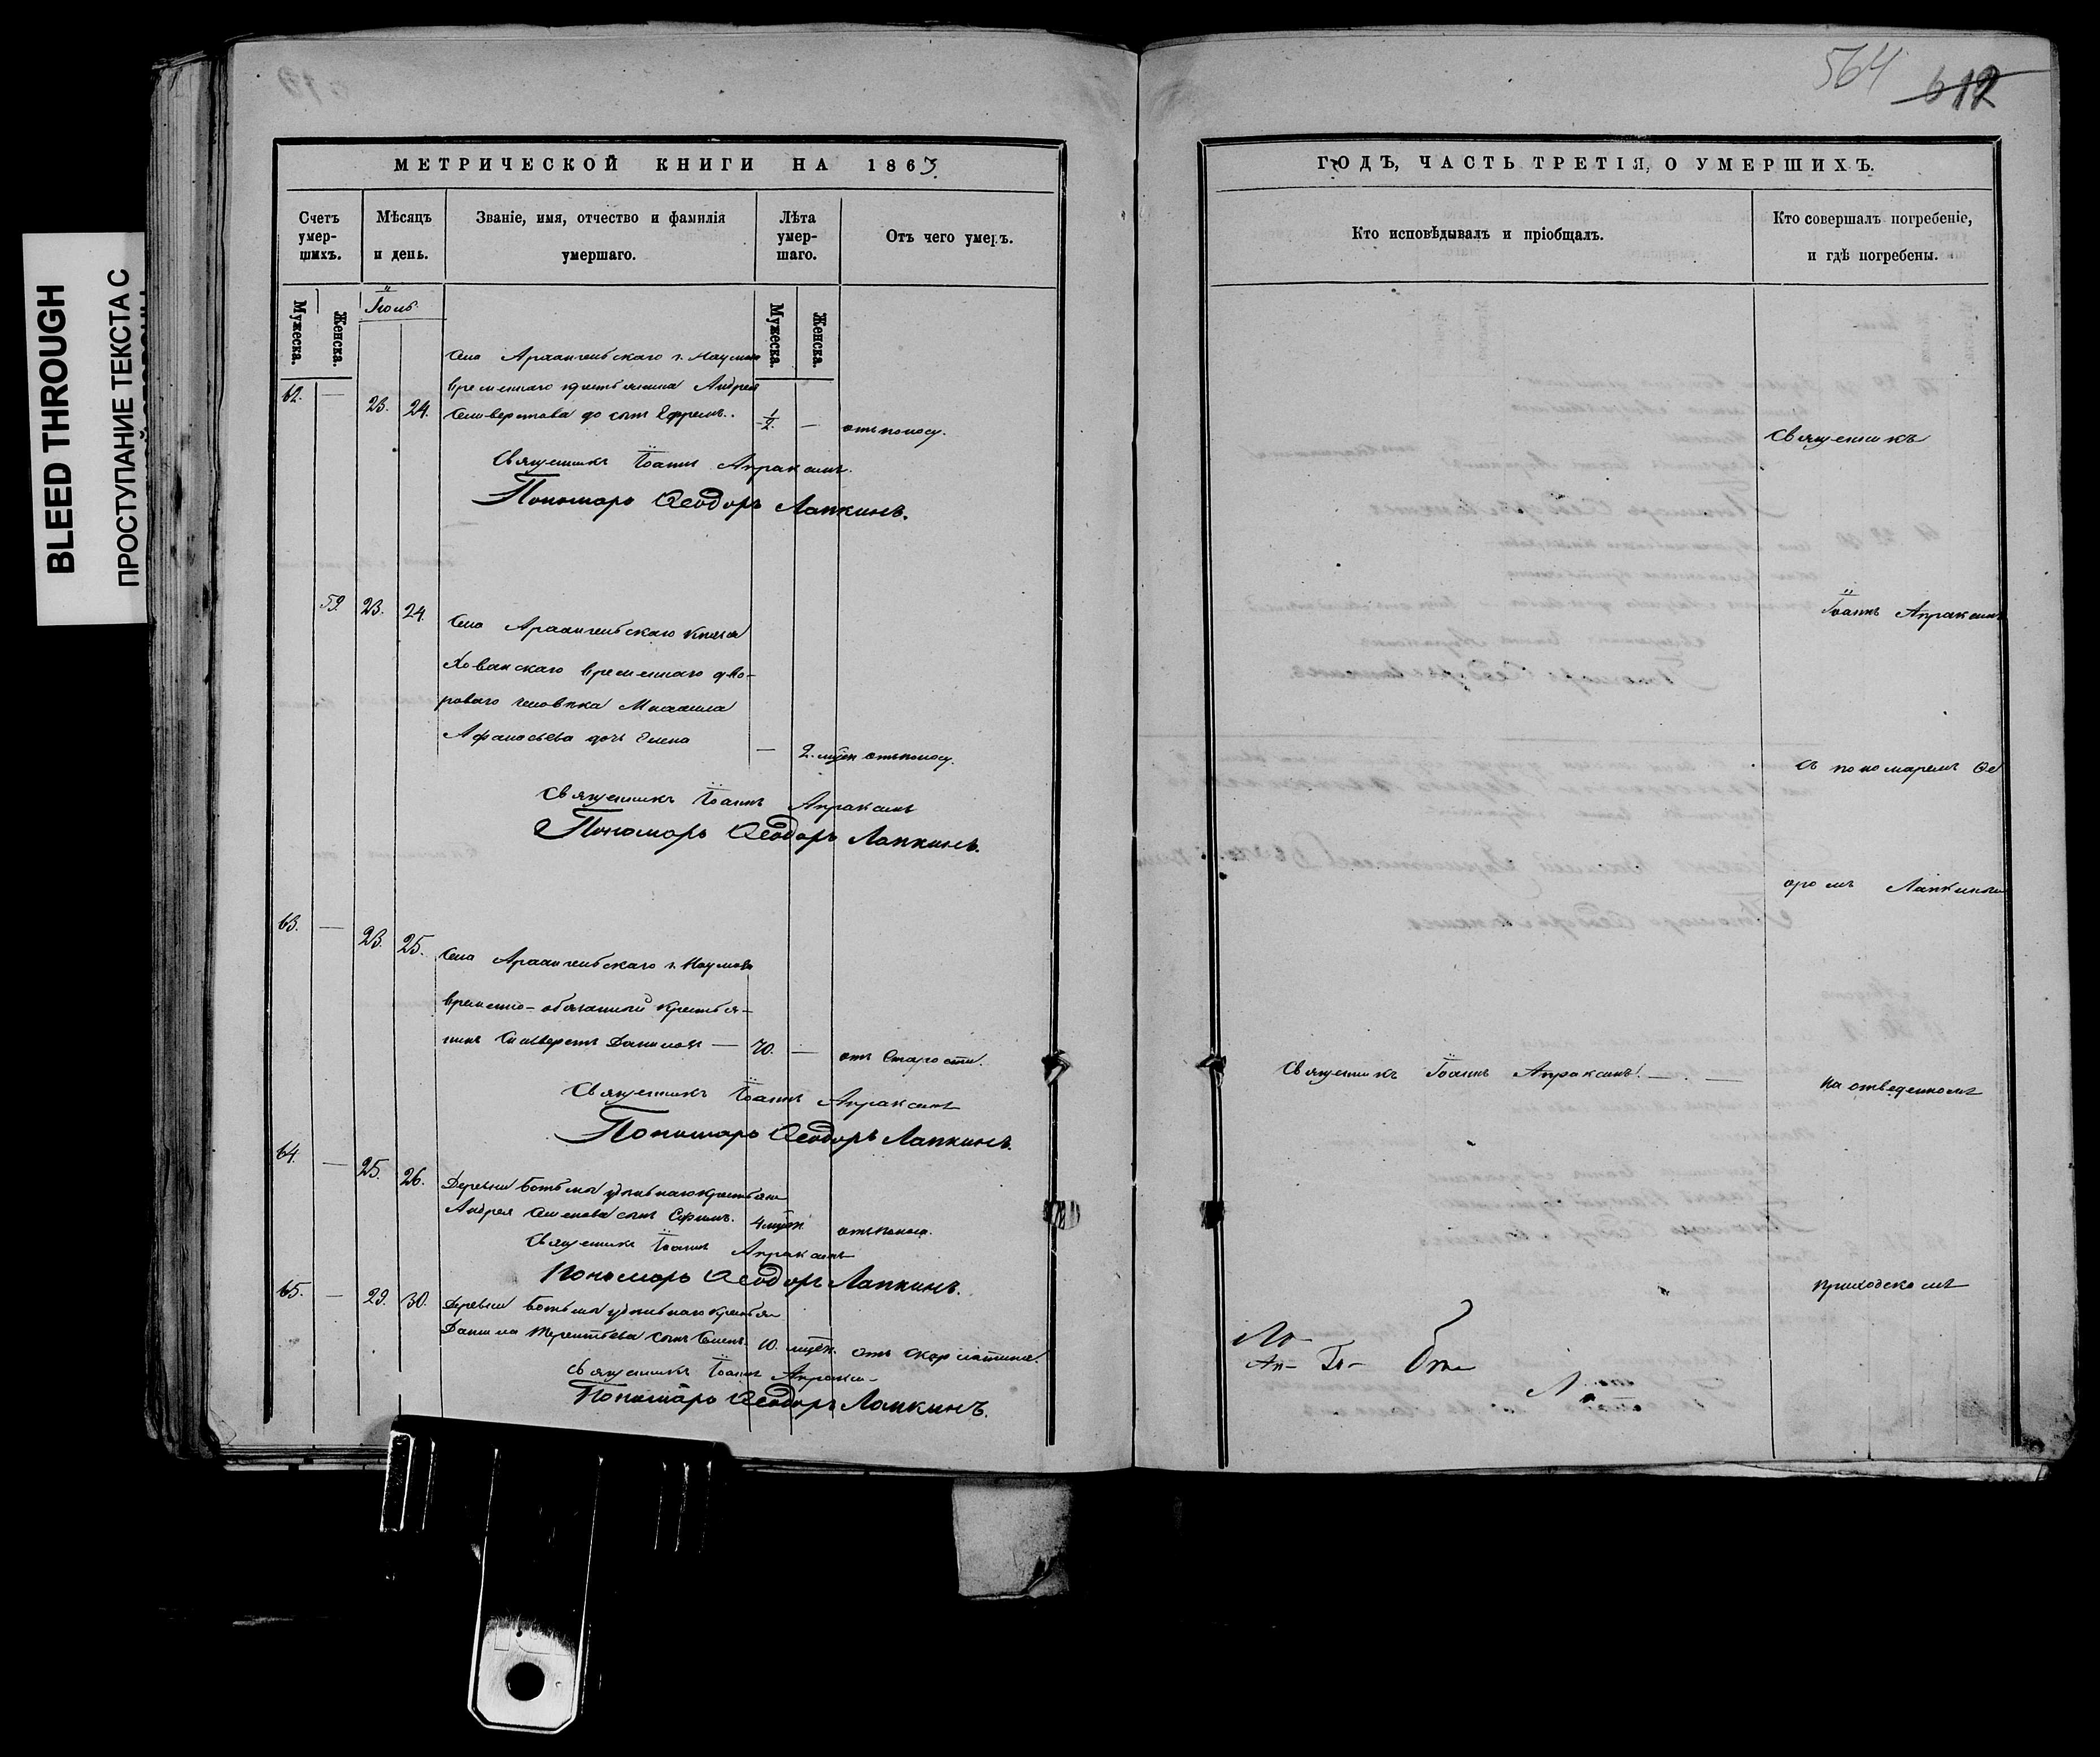 BLEED THROUGH
ПРОСТУПАНИЕ ТЕКСТА С
564 612
МЕТРИЧЕСКОЙ КНИГИ НА 1863
Счетъ умер-шихъ.
Мѣсяцъ и день.
Званіе, имя, отчество и фамилія умершаго.
Лѣта умер-шаго.
Отъ чего умеръ.
Мужеска. Женска.
Іюль
Мужеска. Женска.
Села Архангельскаго г. Наумова
временнаго крестьянина Андрея
62. — 23. 24. Селиверстова сынъ Ефремъ. 1/2. — отъ поносу.
Священникъ Іоаннъ Апраксинъ.
Пономарь Ѳеодоръ Лапкинъ.
59. 23. 24. Села Архангельскаго Князя
Хованскаго временнаго дво-
роваго человѣка Михаила
Афанасьева дочь Елена — 2. отъ поносу.
Священникъ Іоаннъ Апраксинъ
Пономарь Ѳеодоръ Лапкинъ.
63. — 23. 25. Села Архангельскаго г. Наумова
временно-обязанный крестья-
нинъ Селиверстъ Даниловъ — 70. — отъ старости.
Священникъ Іоаннъ Апраксинъ
Пономарь Ѳеодоръ Лапкинъ.
64. — 25. 26. Деревни Ботьмы удѣльнаго крестьян
Андрея Семенова сынъ Ефимъ. 4 отъ поноса.
Священникъ Іоаннъ Апраксинъ
Пономарь Ѳеодоръ Лапкинъ.
65. — 29. 30. Деревни Ботьмы удѣльнаго крестья
Данила Терентьева сынъ Семенъ. 10. отъ скарлатины.
Священникъ Іоаннъ Апраксин
Пономарь Ѳеодоръ Лапкинъ.
ГОДЪ, ЧАСТЬ ТРЕТІЯ, О УМЕРШИХЪ.
Кто исповѣдывалъ и пріобщалъ.
Кто совершалъ погребеніе, и гдѣ погребены.
Священникъ
Іоаннъ Апраксинъ
съ пономаремъ Ѳе
оромъ Лапкинымъ
Священникъ Іоаннъ Апраксинъ. — . —
на отведенномъ
приходскомъ